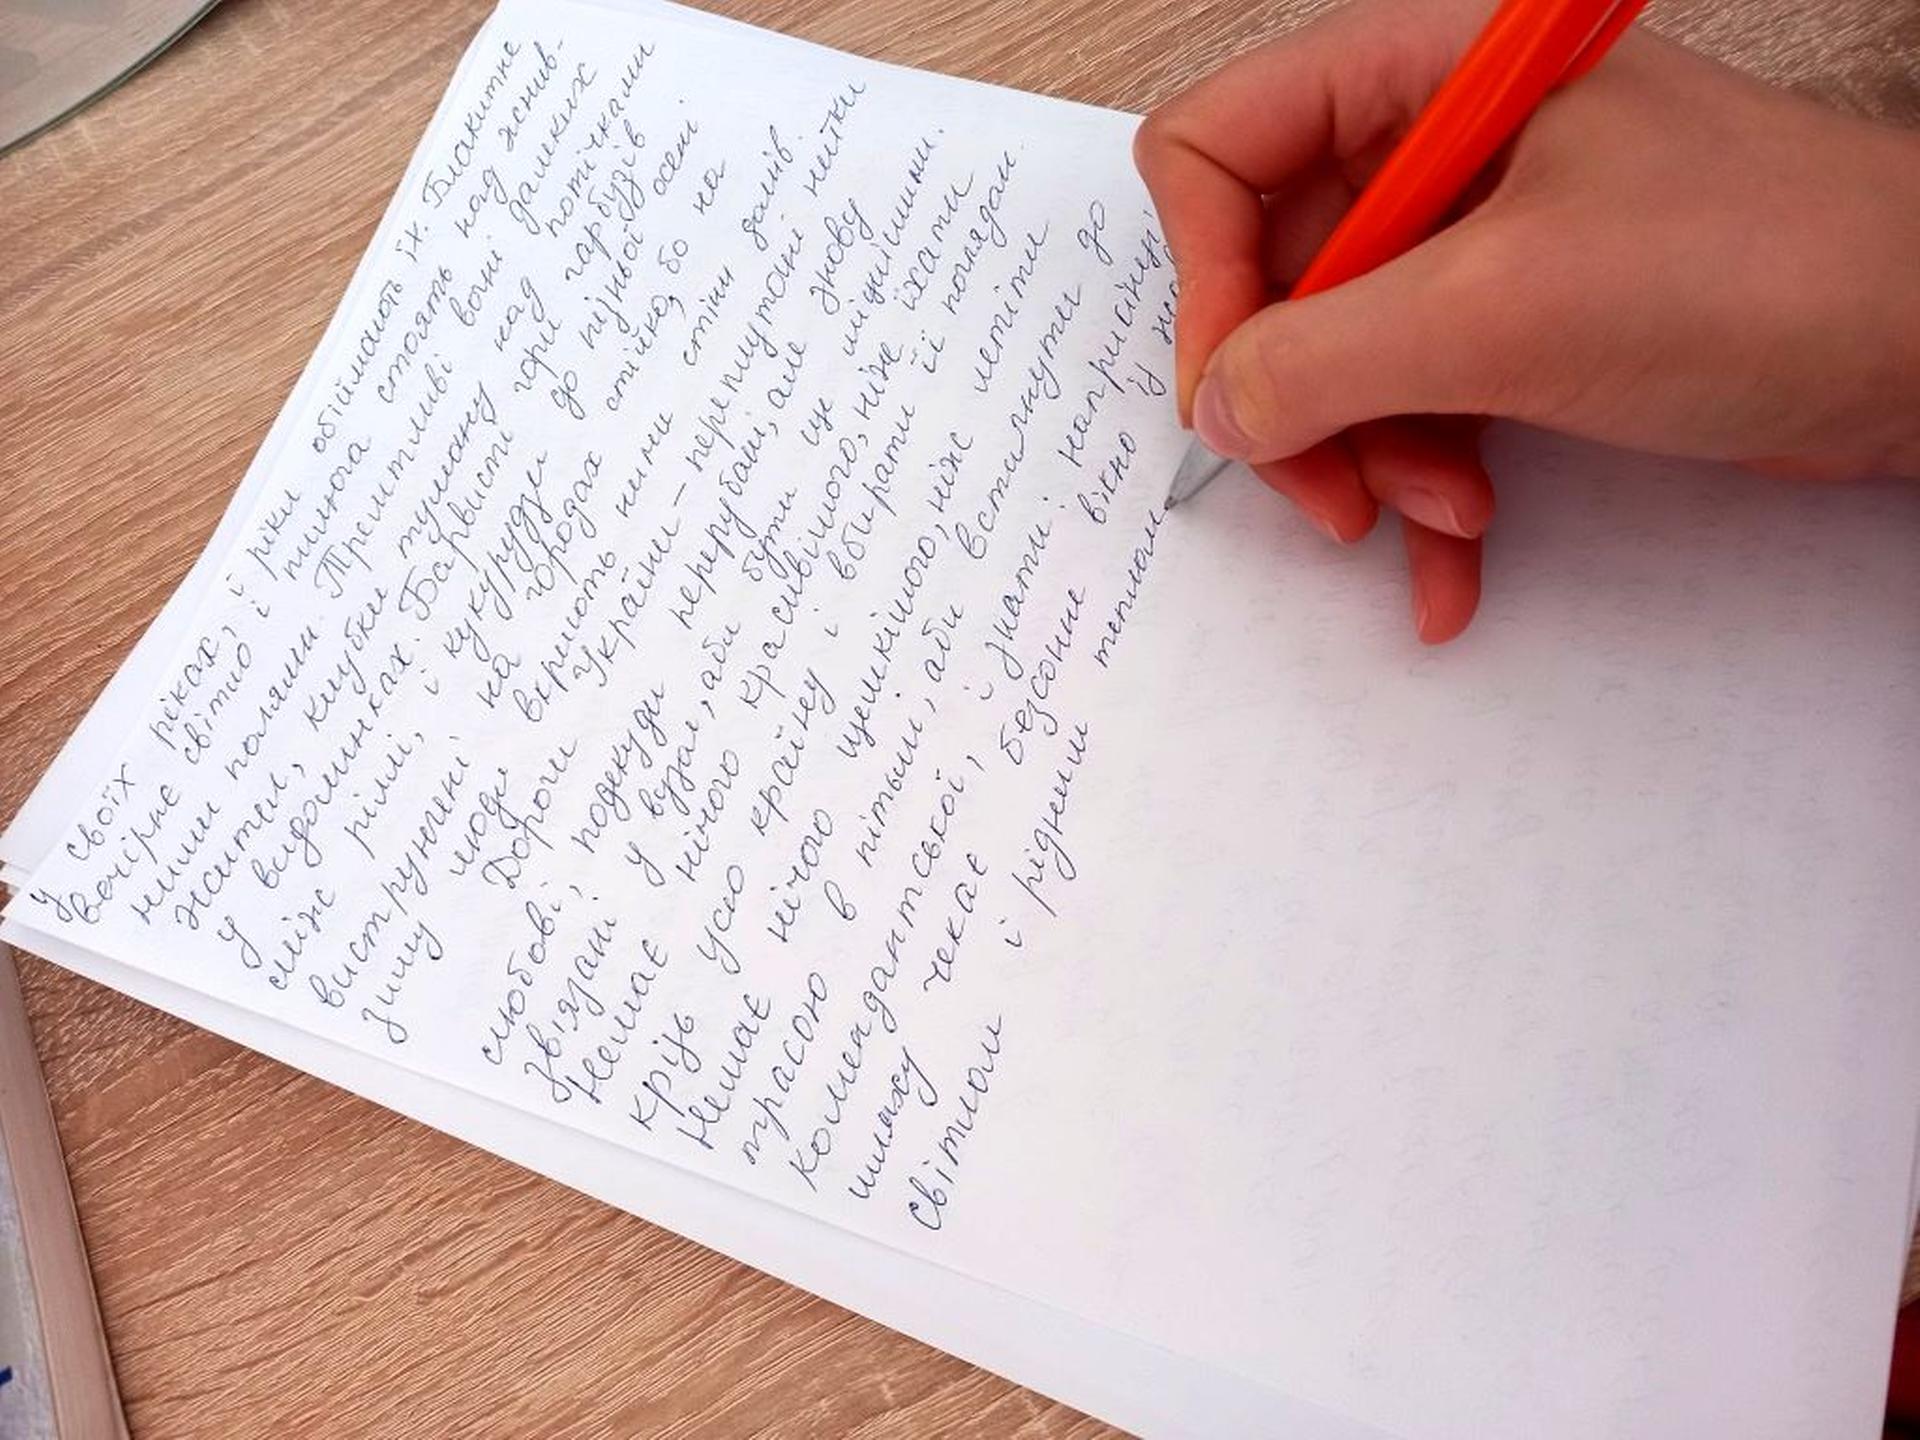 У своїх ріках, і ріки обіймають їх. Блакитне
вечірнє світло і пилюга стоять над жнив-
ними полями. Тремтливі вогні далеких
жител, клубки туману над потічками
у видолинках. Барвисті гори гарбузів
між ріллі, і кукурудзи до пізньої осені
вистручені на городах стійко, бо на
зиму люди вершать ними стіни хлівів.
Дороги України – переплутані нитки
любові, подекуди перерубані, але знову
зв'язані у вузол, аби бути ще міцнішими.
Немає нічого красивішого, ніж їхати
крізь усю країну і вбирати її поглядом.
Немає нічого щемкішого, ніж летіти
трасою в пітьмі, аби встигнути до
комендантської, і знати: наприкінці
шляху чекає безсонне вікно із
світлом і рідним теплом